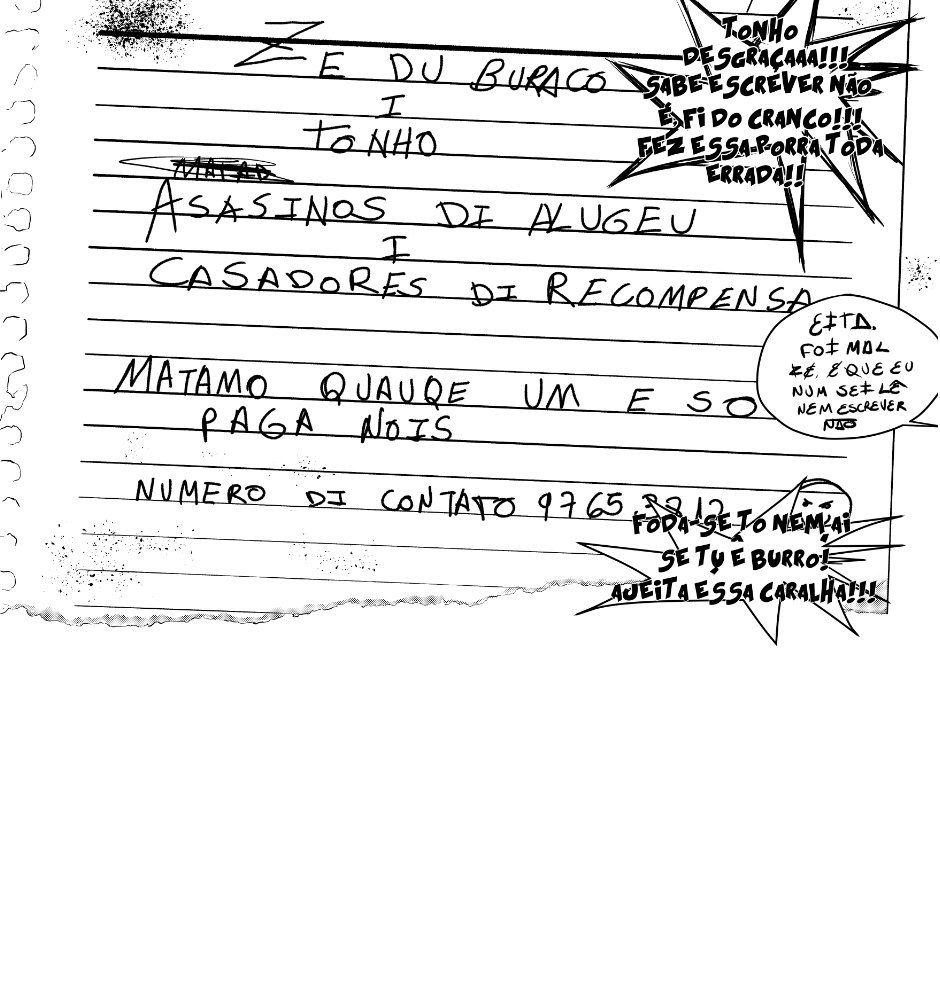 ZE DU BURACO
I
TONHO
MATAD
ASASINOS DI ALUGEU
I
CASADORES DI RECOMPENSA
MATAMO QUAUQE UM E SO
PAGA NOIS
NUMERO DI CONTATO 9765
TONHO
DESGRAÇAAA!!!
SABE ESCREVER NÃO
É, FI DO CRANCO!!!
FEZ ESSA PORRA TODA
ERRADA!!
EITA.
FOI MAL
ZÉ, É QUE EU
NUM SEI LÊ
NEM ESCREVER
NÃO
FODA-SE TO NEM AI
SE TU É BURRO!
AJEITA ESSA CARALHA!!!